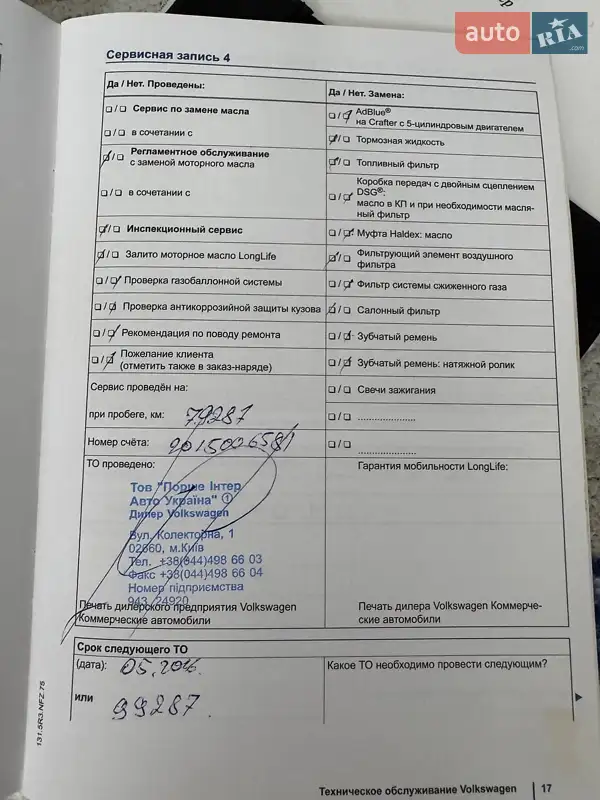 auto RIA .com
Сервисная запись 4
Да / Нет. Проведены:
❏ / ❏ Сервис по замене масла
❏ / ❏ в сочетании с
❏ / ❏ Регламентное обслуживание
с заменой моторного масла
❏ / ❏ в сочетании с
❏ / ❏ Инспекционный сервис
❏ / ❏ Залито моторное масло LongLife
❏ / ❏ Проверка газобаллонной системы
❏ / ❏ Проверка антикоррозийной защиты кузова
❏ / ❏ Рекомендация по поводу ремонта
❏ / ❏ Пожелание клиента
(отметить также в заказ-наряде)
Сервис проведён на:
при пробеге, км: 79287
Номер счёта: 9015006581
ТО проведено:
Тов "Порше Інтер
Авто Україна" 1
Дилер Volkswagen
Вул. Колекторна, 1
02660, м.Київ
Тел. +38(044)498 66 03
Факс +38(044)498 66 04
Номер підприємства
943 24920
Печать дилерского предприятия Volkswagen
Коммерческие автомобили
Да / Нет. Замена:
❏ / ❏ AdBlue®
на Crafter с 5-цилиндровым двигателем
❏ / ❏ Тормозная жидкость
❏ / ❏ Топливный фильтр
❏ / ❏ Коробка передач с двойным сцеплением
DSG®:
масло в КП и при необходимости масля-
ный фильтр
❏ / ❏ Муфта Haldex: масло
❏ / ❏ Фильтрующий элемент воздушного
фильтра
❏ / ❏ Фильтр системы сжиженного газа
❏ / ❏ Салонный фильтр
❏ / ❏ Зубчатый ремень
❏ / ❏ Зубчатый ремень: натяжной ролик
❏ / ❏ Свечи зажигания
❏ / ❏ .....................
❏ / ❏ .....................
Гарантия мобильности LongLife:
Печать дилера Volkswagen Коммерче-
ские автомобили
Срок следующего ТО
(дата): 05.2016
или 99287
Какое ТО необходимо провести следующим?
131.5R3.NFZ.75
Техническое обслуживание Volkswagen 17